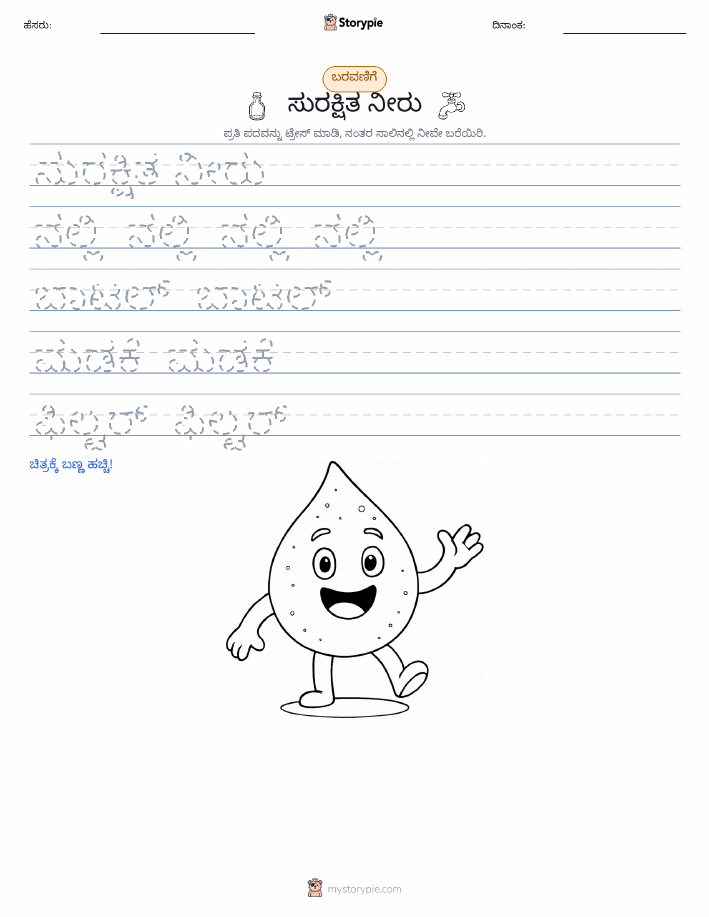 ಹೆಸರು:
Storypie
ದಿನಾಂಕ:
ಬರವಣಿಗೆ
ಸುರಕ್ಷಿತ ನೀರು
ಪ್ರತಿ ಪದವನ್ನು ಟ್ರೇಸ್ ಮಾಡಿ, ನಂತರ ಸಾಲಿನಲ್ಲಿ ನೀವೇ ಬರೆಯಿರಿ.
ಸುರಕ್ಷಿತ ನೀರು
ನಲ್ಲಿ ನಲ್ಲಿ ನಲ್ಲಿ ನಲ್ಲಿ
ಬಾಟಲ್ ಬಾಟಲ್
ಮಡಕೆ ಮಡಕೆ
ಫಿಲ್ಟರ್ ಫಿಲ್ಟರ್
ಚಿತ್ರಕ್ಕೆ ಬಣ್ಣ ಹಚ್ಚಿ!
mystorypie.com